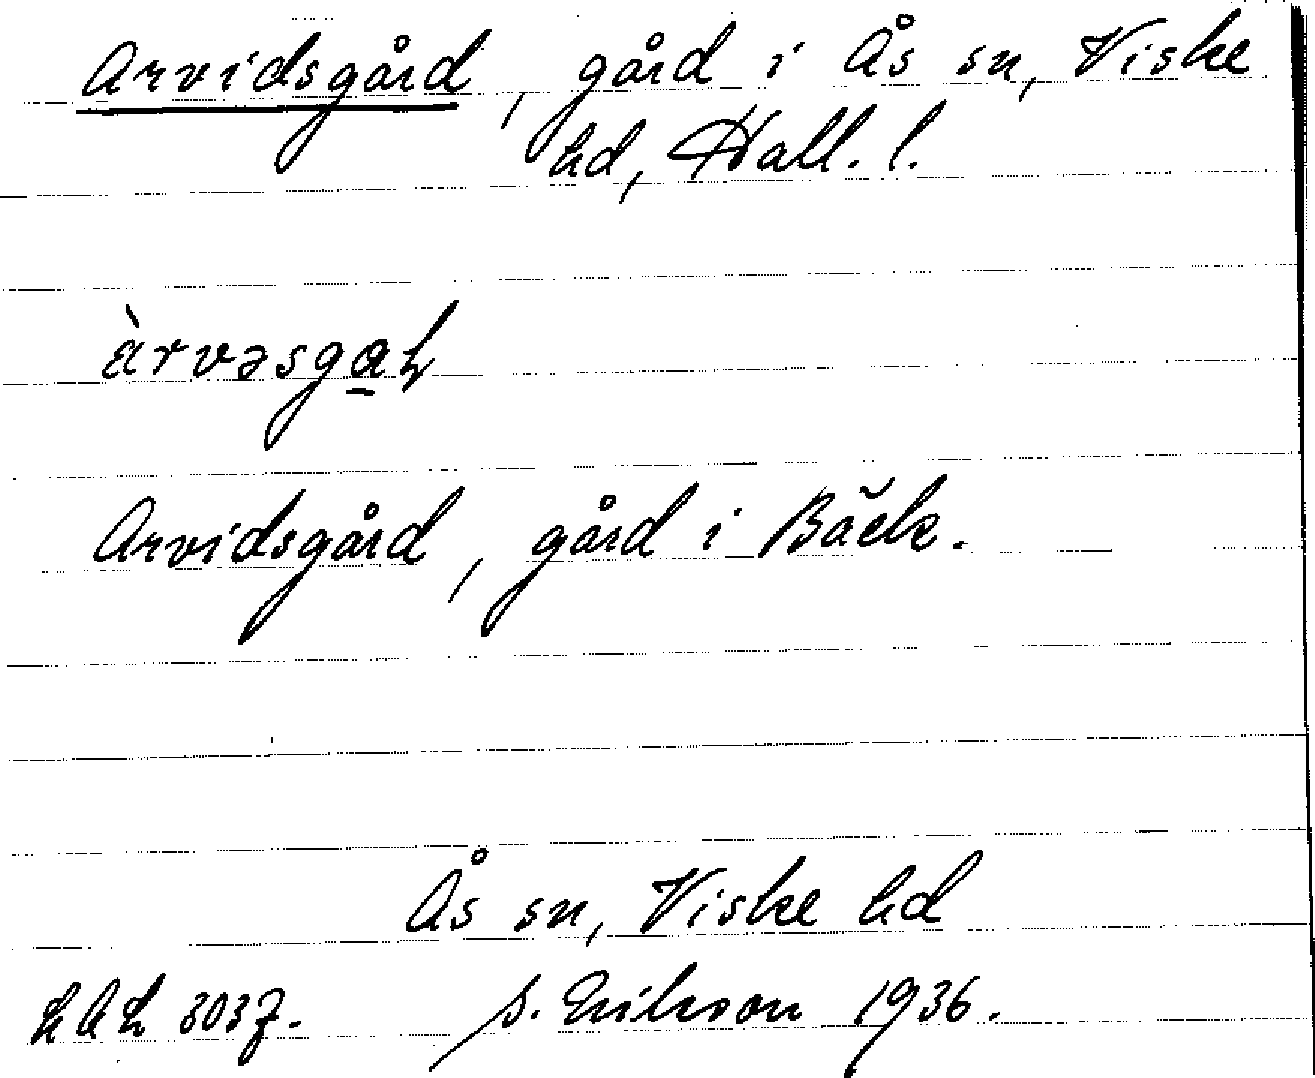 Arvidsgård, gård i Ås sn, Viske
hd, Hall. l.
àrvəsga̲
Arvidsgård, gård i Bäck.
Ås sn, Viske hd
3037. S. Erikson 1936.